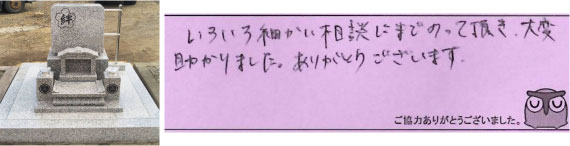 絆
いろいろ細かい相談にまでのって頂き、大変
助かりました。ありがとうございます。
ご協力ありがとうございました。